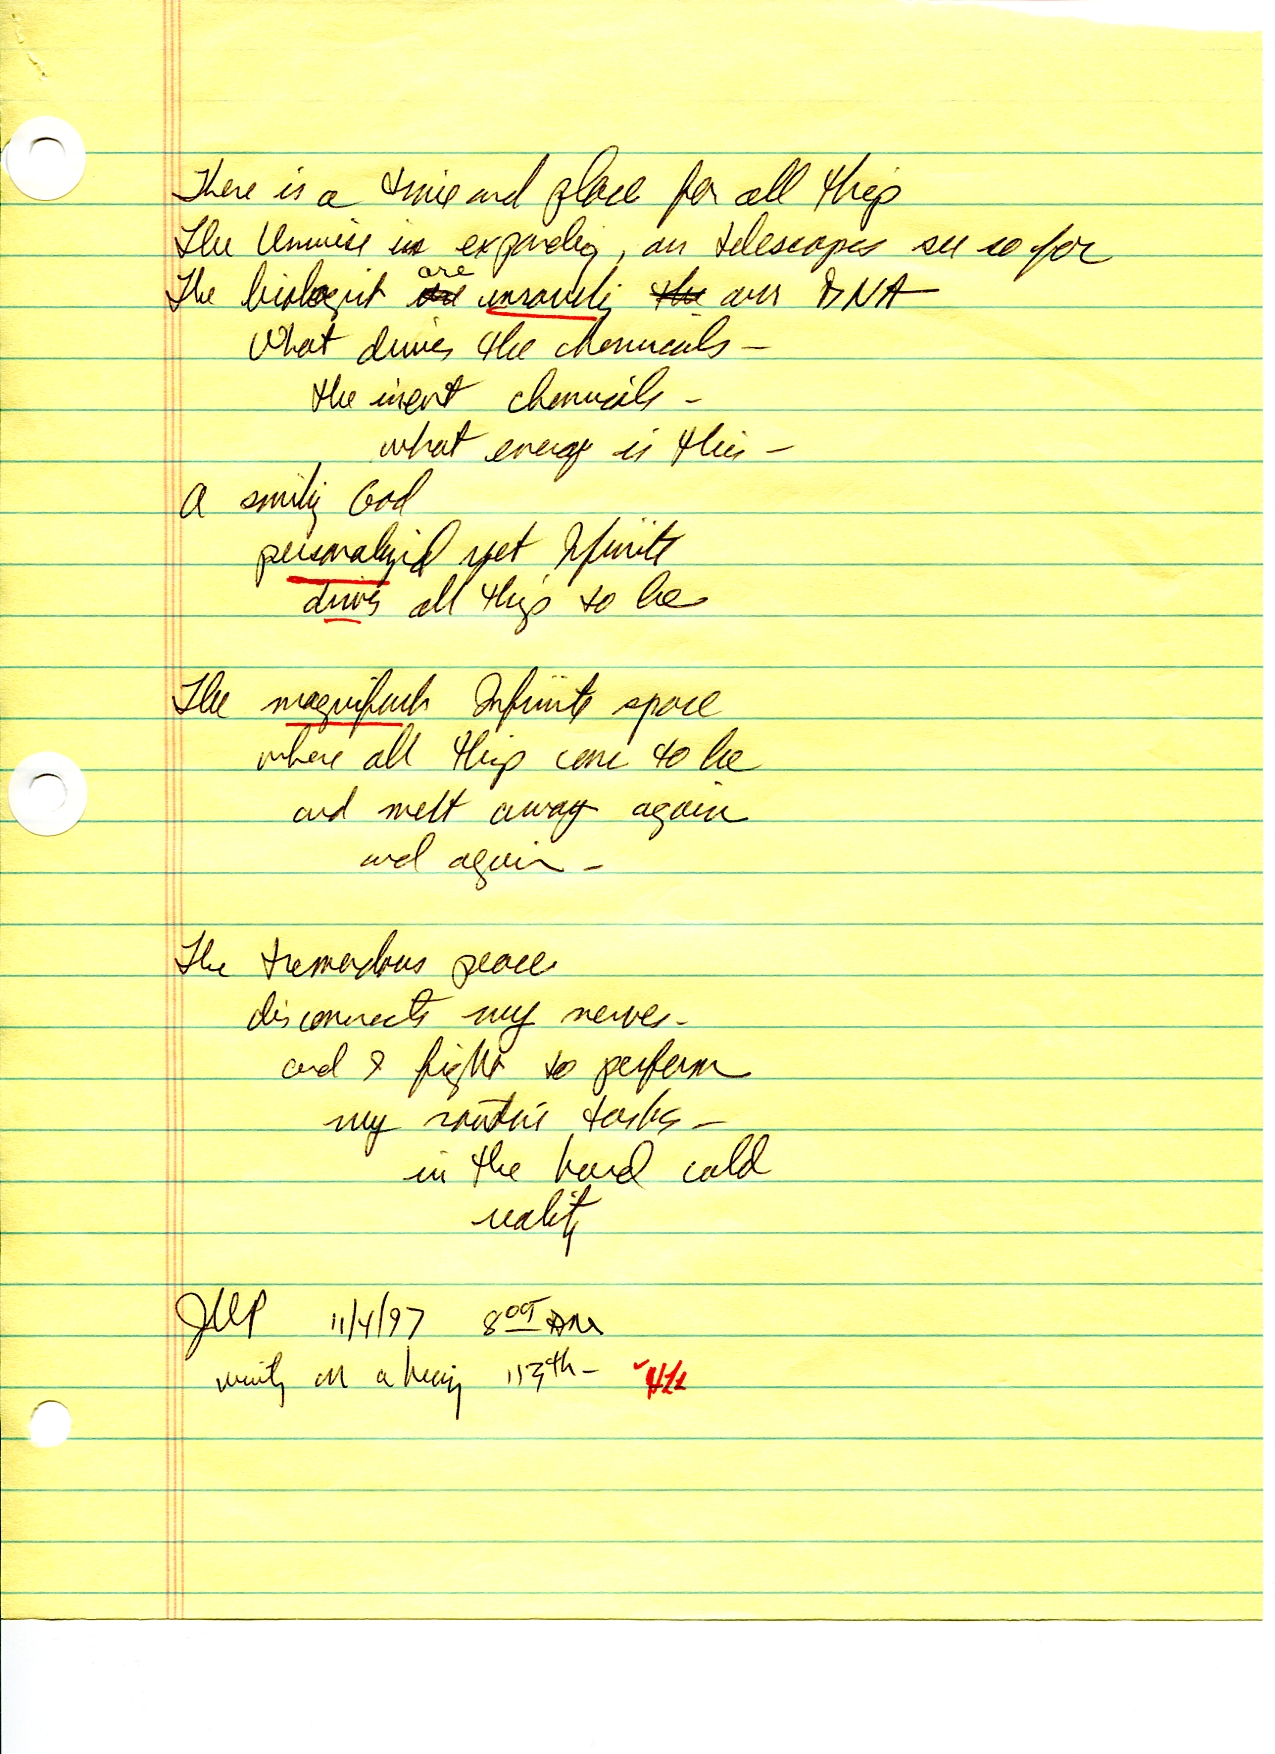 There is a time and place for all things
The Universe is expanding, our telescopes see so far
The biologist are unraveling our DNA
What drives the chemicals -
the inert chemicals -
what energy is this -
A smiling God
personalized yet Infinite
drives all things to be
The magnificent Infinite space
where all things come to be
and melt away again
and again -
The tremendous peace
disconnects my nerves -
and I fight to perform
my routine tasks -
in the hard cold
reality
11/4/97 8:00 AM
waiting on a hearing